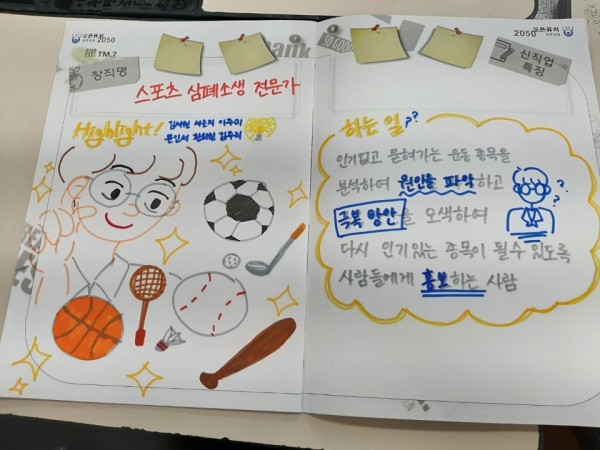 오픈퓨처
2050
TM.7
창직명
스포츠 심폐소생 전문가
Highlight!
하는 일??
인기없고 묻혀가는 운동 종목을
분석하여 원인을 파악하고
극복 방안을 모색하여
다시 인기있는 종목이 될수 있도록
사람들에게 홍보하는 사람
오픈퓨처
2050
신직업
특징